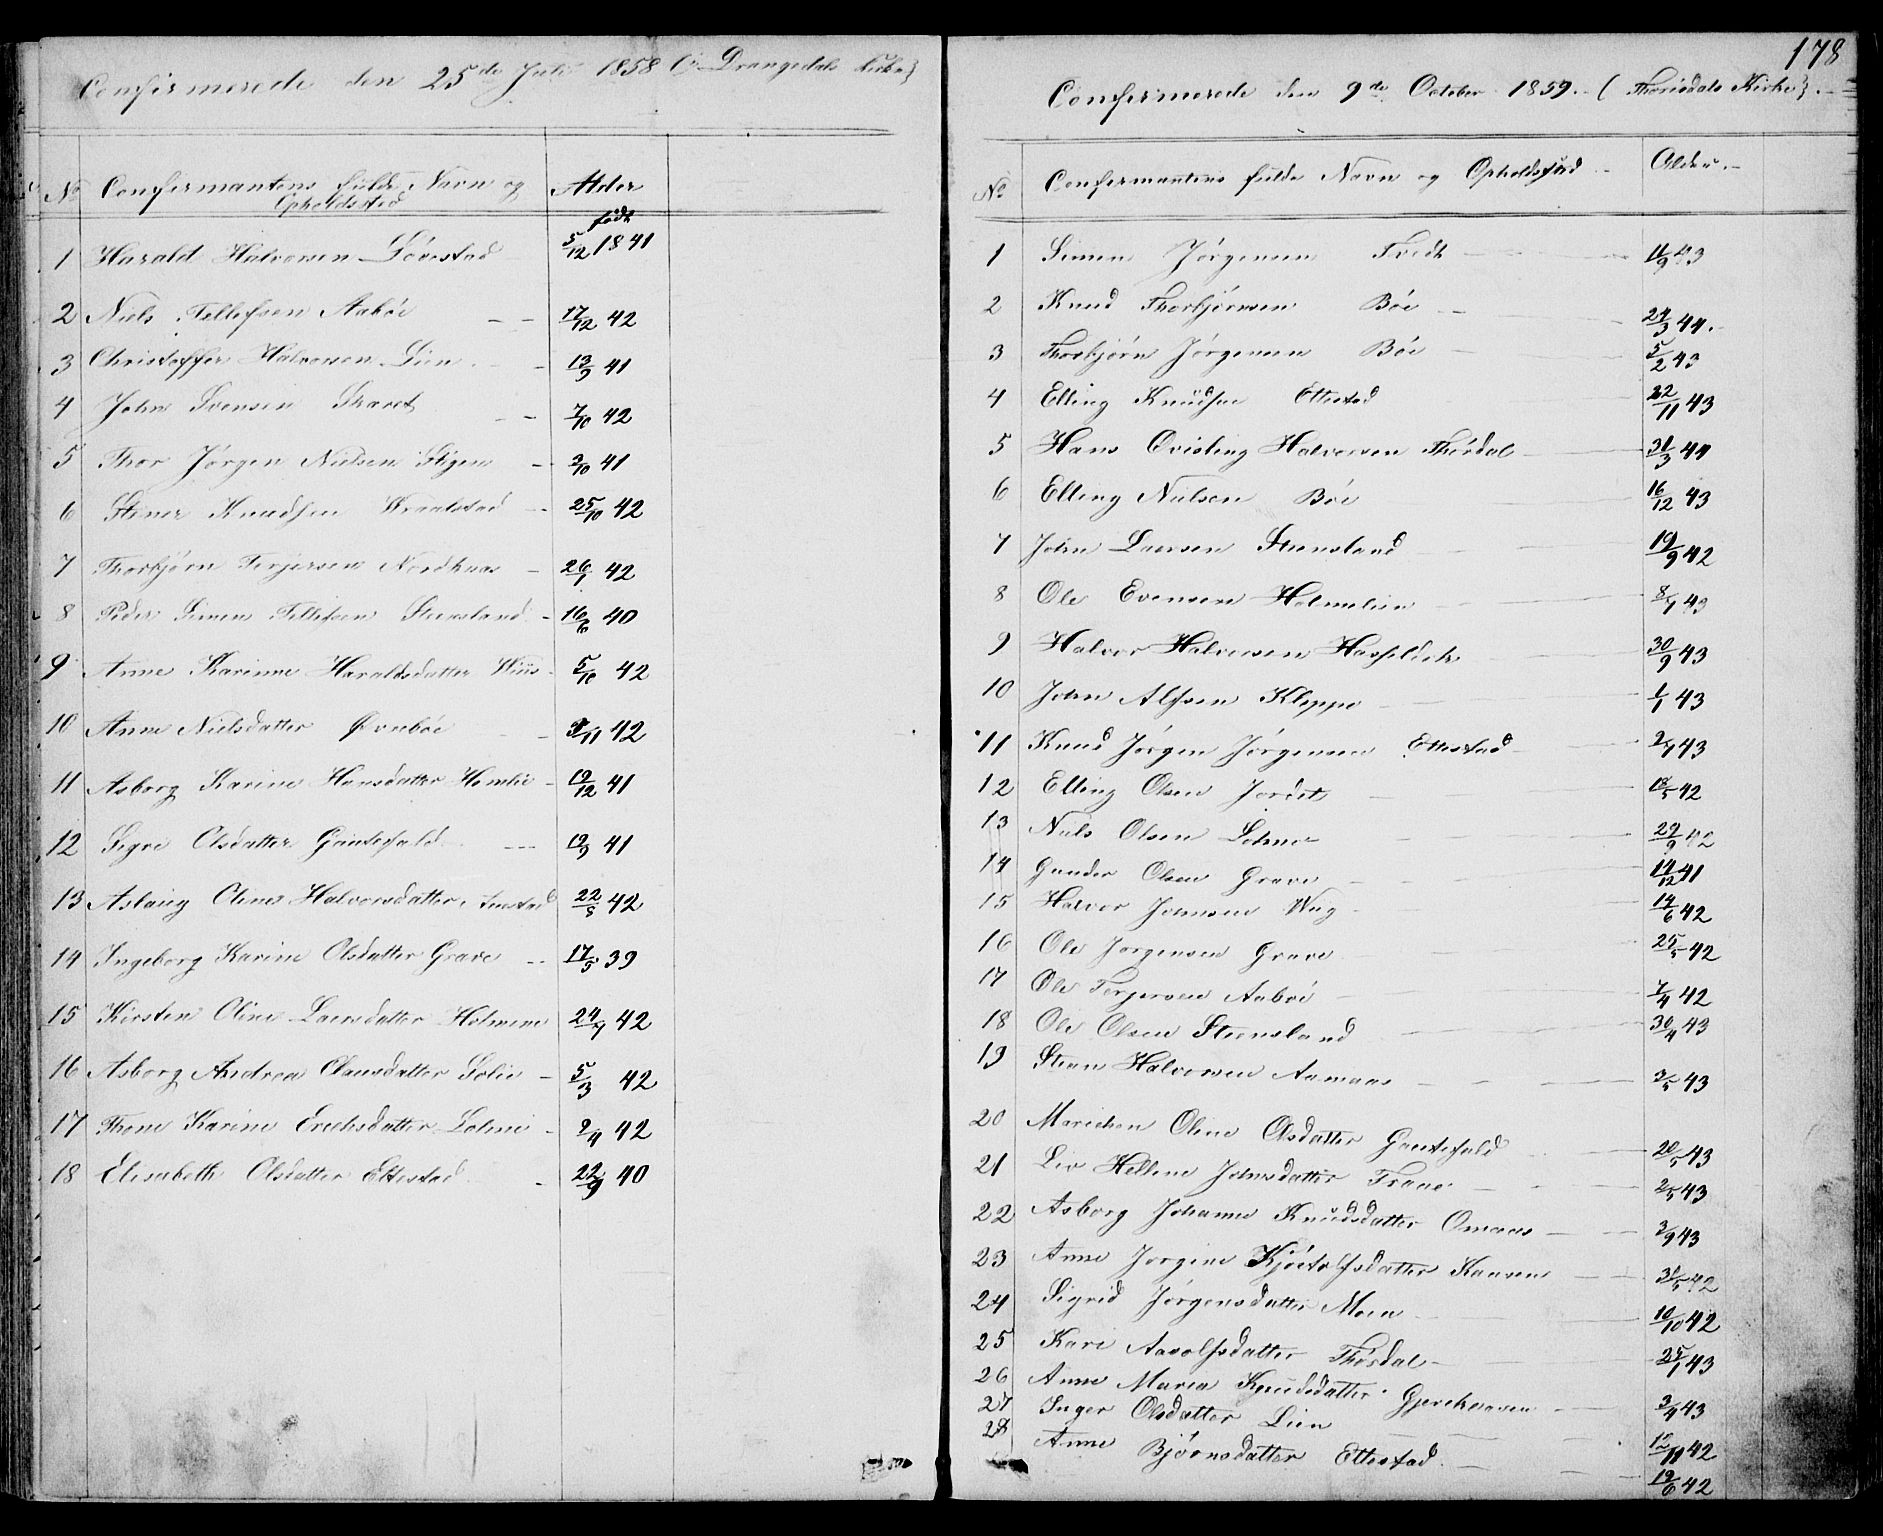 Confirmerede den 25de Juli 1858 (i Drangedals Kirke)
No Confirmantens fulde Navn og Opholdssted Alder
født
1 Harald Halvorsen Lövestad 5/12 1841
2 Niels Tellefsen Aaböe 17/12 42
3 Christoffer Halvorsen Lien 13/9 41
4 John Svensen 7/10 42
5 Thor Jörgen Nielsen Stigen 3/10 41
6 Stener Knudsen 25/10 42
7 Thorbjörn Terjersen 26/1 42
8 Peder Simen Tellefsen Steensland 16/6 40
9 Anne Karinne Haraldsdatter 5/10 42
10 Anne Nielsdatter Øvreböe /11 42
11 Asborg Karine Hansdatter Homlie 19/12 41
12 Sigri Olsdatter Gautefald 19/9 41
13 Aslaug Oline Halvorsdatter 22/8 42
14 Ingeborg Karine Olsdatter Grave 17/5 39
15 Kirsten Oline Larsdatter Holmene 24/7 42
16 Asborg Andrea Clausdatter Solie 5/3 42
17 Thone Karine Erichsdatter Lohne 2/4 42
18 Elisabeth Olsdatter Ettestad 22/9 40
178
Confirmerede den 9de October 1859. (Thörisdals Kirke).
No Confirmantens fulde Navn og Opholdssted Alder.
1 Simen Jörgensen Tvedt 11/9 43
2 Knud Thorbjörnsen Böe 24/3 44.
3 Thorbjörn Jörgensen Böe 5/2 43
4 Elling Knudsen Ettestad 22/11 43
5 Hans Qvisling Halvorsen Thördal 31/3 44
6 Elling Nielsen Böe 16/12 43
7 John Larsen Steensland 19/9 42
8 Ole Evensen Holmelien 8/7 43
9 Halvor Halvorsen 30/9 43
10 John Alfsen Kleppo 1/1 43
11 Knud Jörgen Jörgensen Ettestad 2/7 43
12 Elling Olsen Jordet 18/5 42
13 Niels Olsen Lohne 29/9 42
14 Gunder Olsen Grave 14/12 41
15 Halvor Johnsen Wug 14/6 42
16 Ole Jörgensen Grave 25/5 42
17 Ole Terjersen Aaböe 7/4 42
18 Ole Olsen Steensland 30/4 43
19 Stian Halvorsen Aamaas 3/5 43
20 Marichen Oline Olsdatter Gautefald 20/5 43
21 Liv Hellene Johnsdatter 2/5 43
22 Asborg Johanne Knudsdatter Omaas 3/9 43
23 Anne Jörgine Kjöstolfsdatter 31/5 42
24 Sigrid Jörgensdatter Moen 10/10 42
25 Kari Aavolfsdatter Thördal 25/1 43
26 Anne Maria Knudsdatter 3/4 43
27 Inger Olsdatter Lien 12/11 42
28 Anne Björnsdatter Ettestad 19/6 42